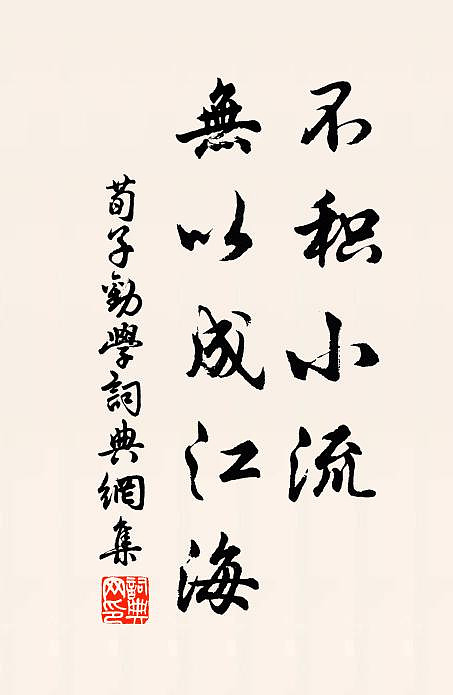 不积小流
無以成江海
荀子勸學詞典網集
詞典
网印